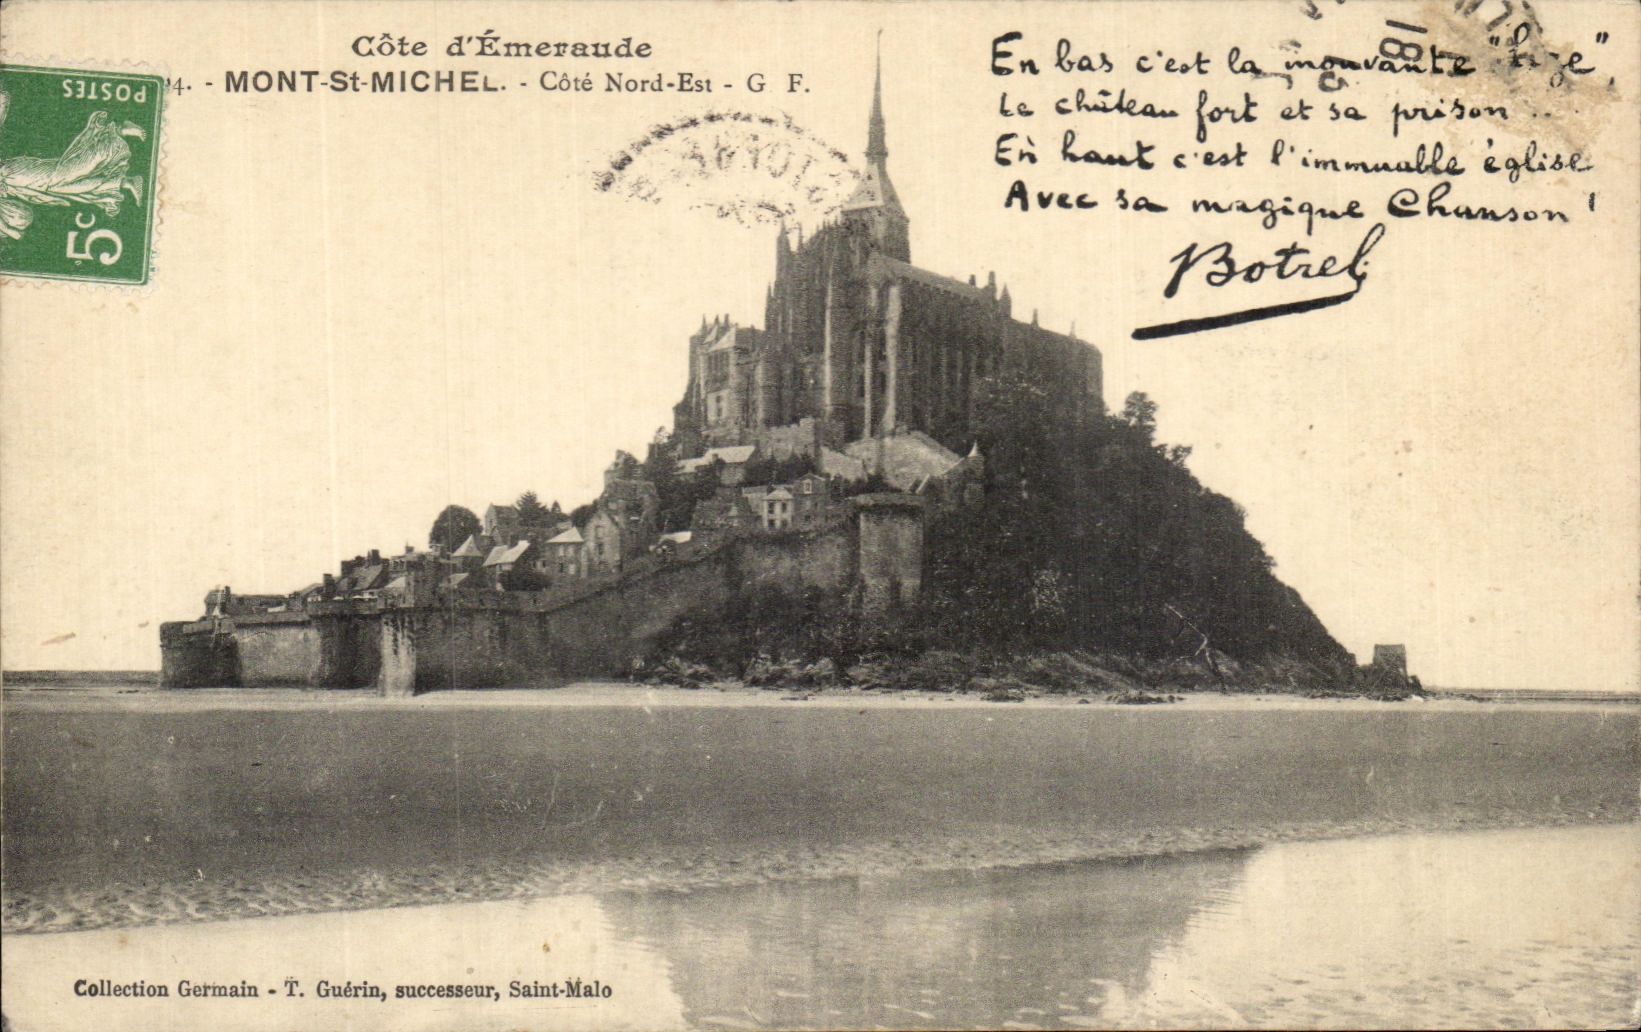 Côte d'Émeraude
4. - MONT-St-MICHEL. - Côté Nord-Est - G F.
POSTES
5c
En bas c'est la mouvante "lise",
Le château fort et sa prison ...
En haut c'est l'immuable église
Avec sa magique Chanson !
Botrel
Collection Germain - T. Guérin, successeur, Saint-Malo